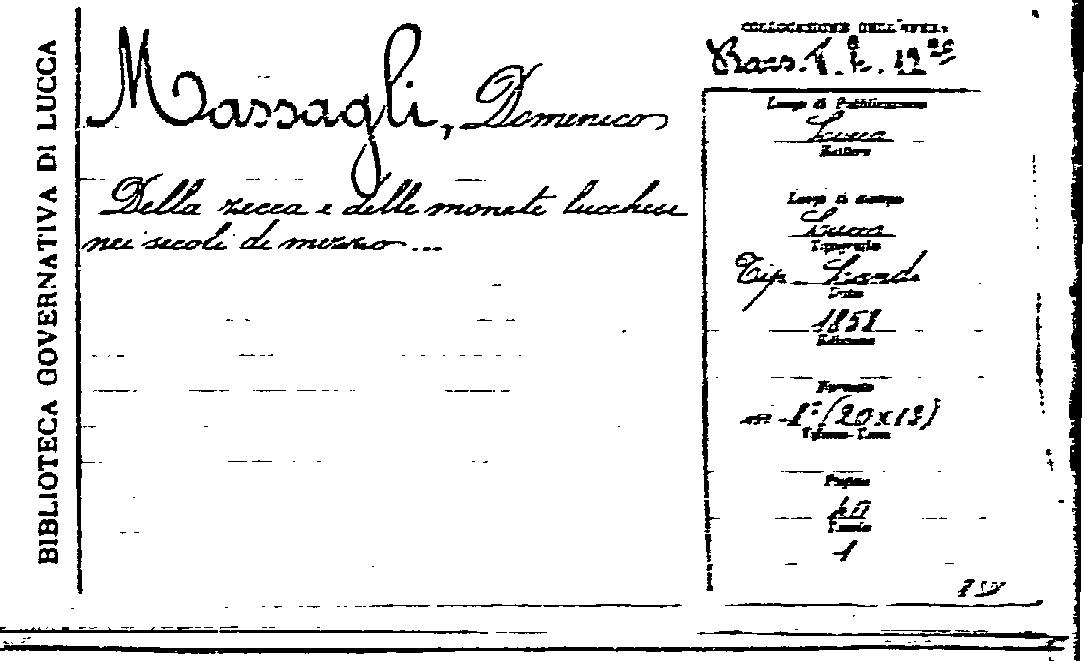 BIBLIOTECA GOVERNATIVA DI LUCCA
Massagli, Domenico
Della zecca e delle monete lucchesi
nei secoli di mezzo ...
COLLOCAZIONE DELL'OPERA
Luogo di Pubblicazione
Lucca
Editore
Luogo di stampa
Lucca
Tipografia
Tip. Landi
Data
1858
Edizione
Formato
8° (20x13)
Volume-Tomo
Pagine
Tavole
1